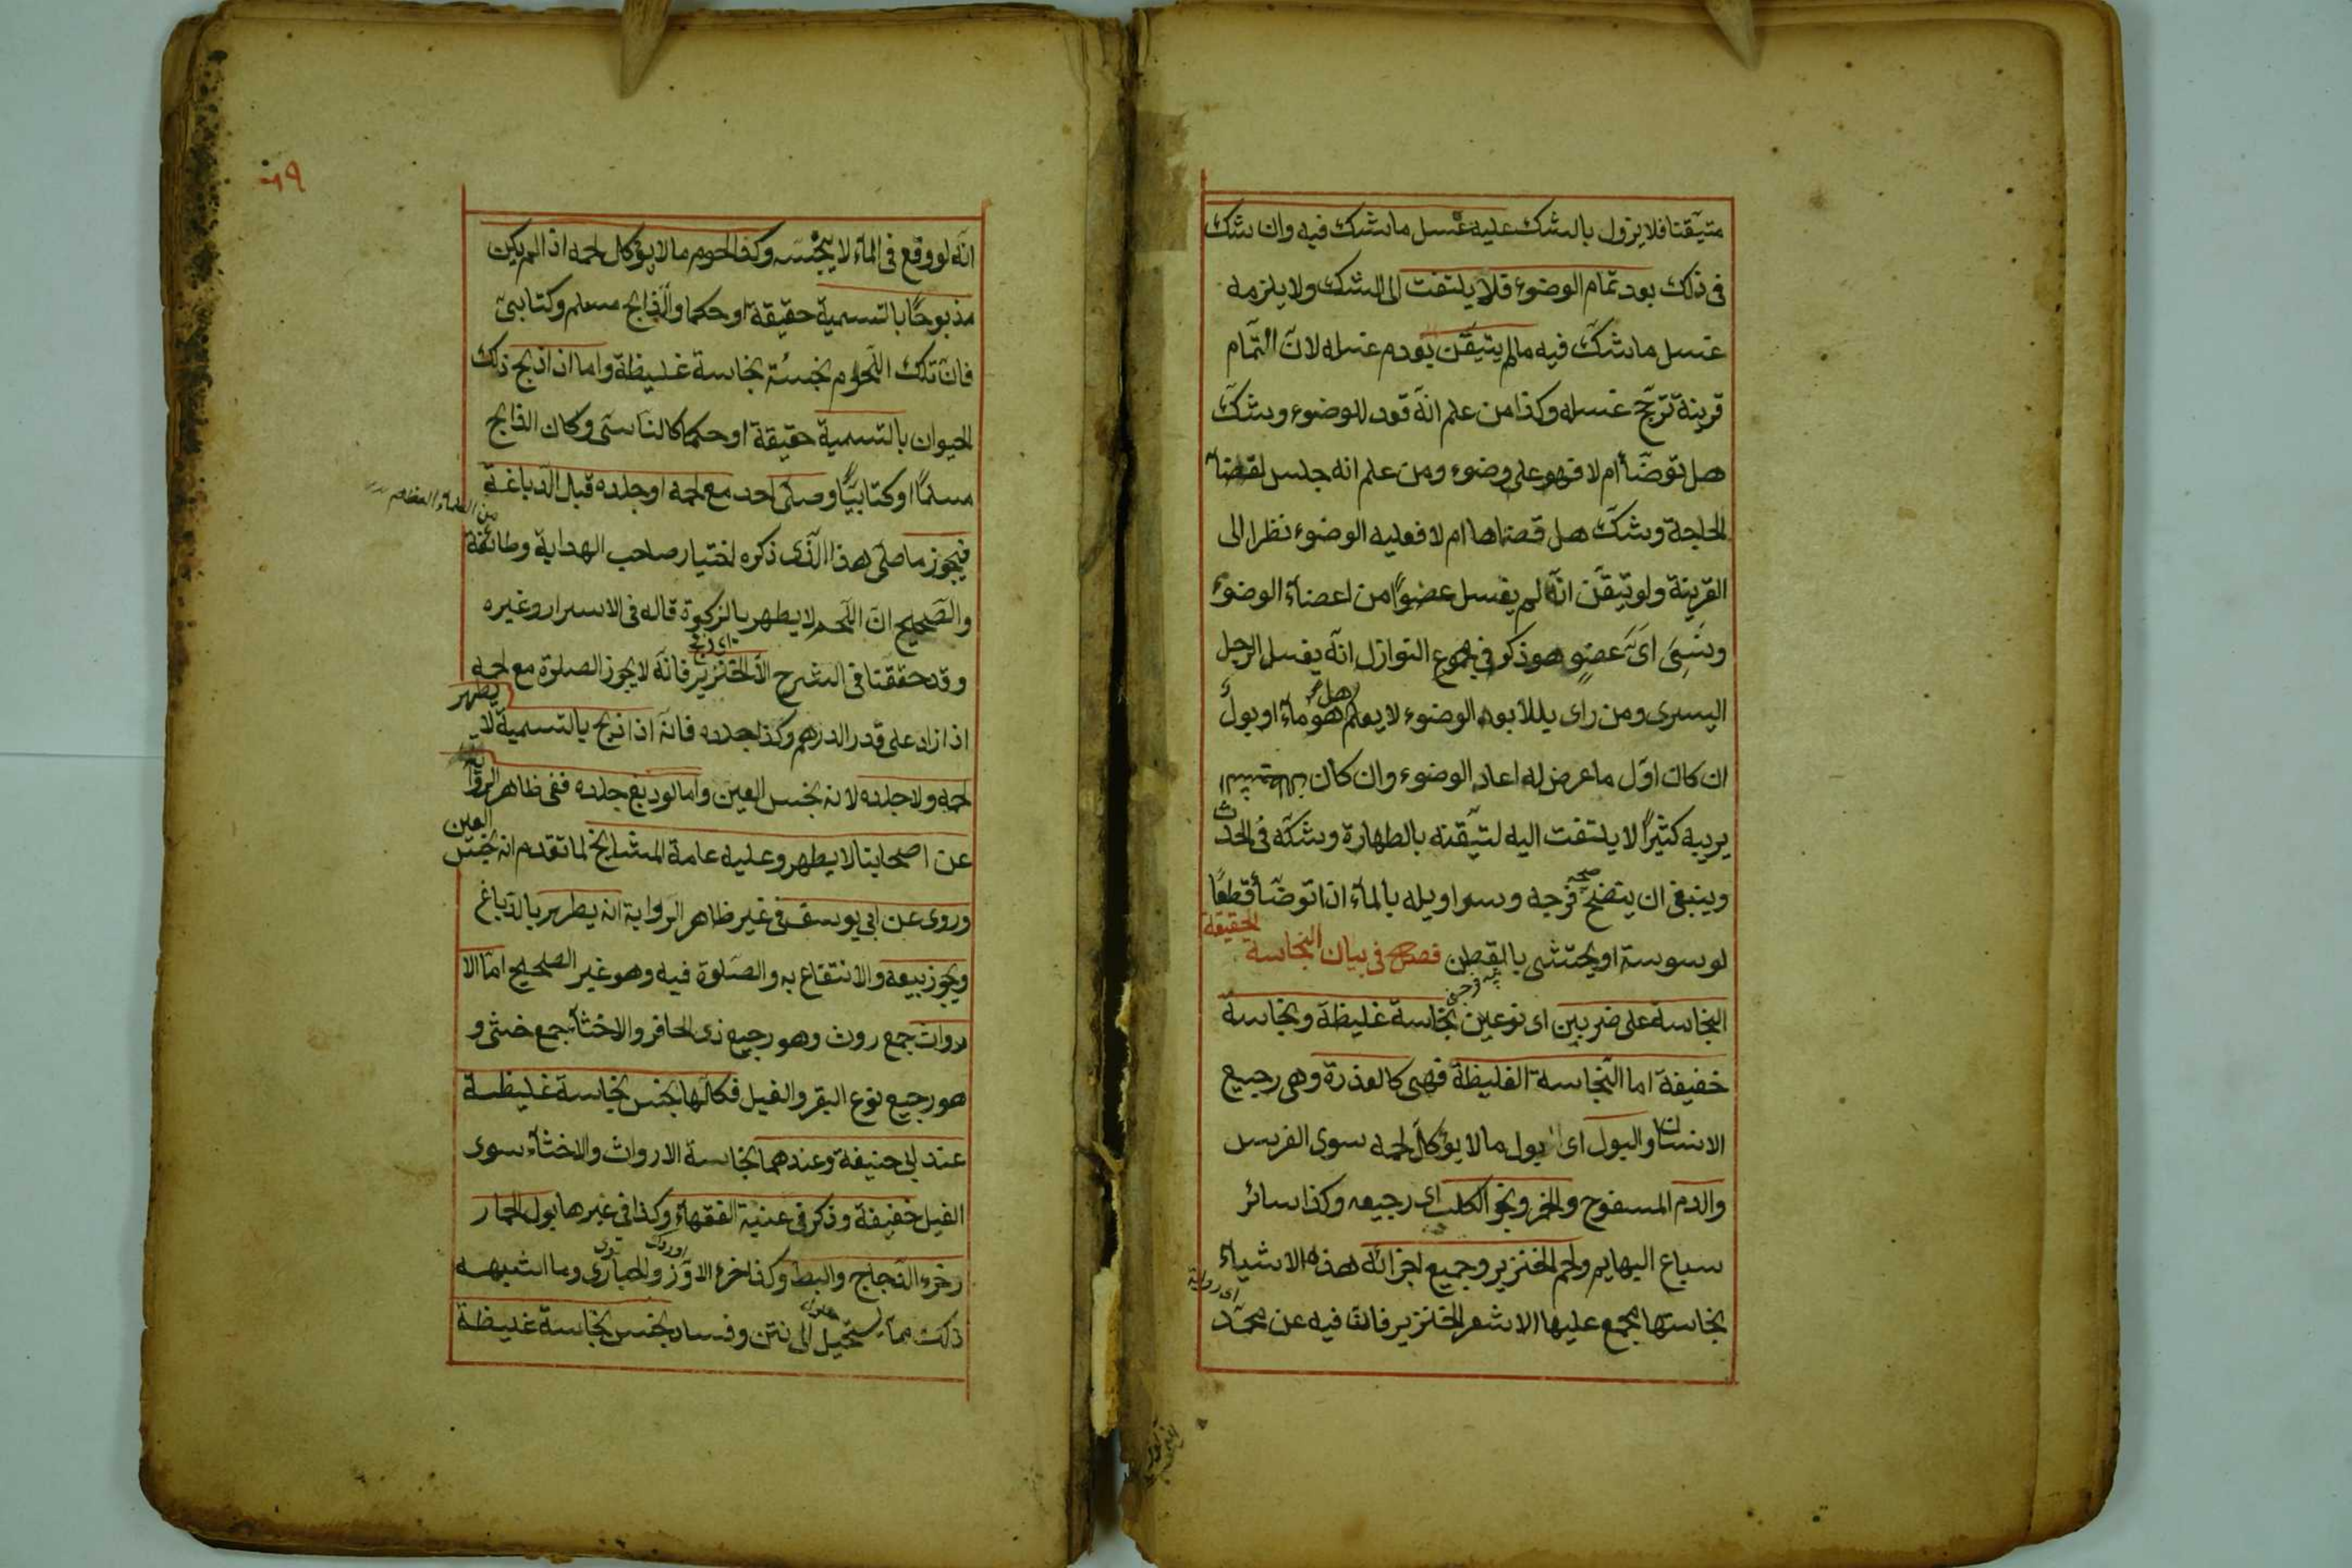 متيقنا فلا يزول بالشك عليه غسل ما شك فيه وان شك
فى ذلك بعد تمام الوضوء فلا يلتفت الى الشك ولا يلزمه
غسل ما شكّ فيه ما لم يتيقّن بعدم غسله لانّ التمام
قرينة ترجّح غسله وكذا من علم انّه قعد للوضوء وشكّ
هل توضّأ ام لا فهو على وضوء ومن علم انه جلس لقضاء
الحاجة وشكّ هل قضاها ام لا فعليه الوضوء نظرا الى
القرينة ولو تيقّن انّه لم يغسل عضوًا من اعضاء الوضوء
ونسِىَ اىَّ عضوٍ هو ذكر فى مجموع النوازل انّه يغسل الرجل
اليسرى ومن راى بللا بعد الوضوء لا يعلم هل هو ماء او بول
ان كان اوّل ما عرض له اعاد الوضوء وان كان
يريبه كثيرًا لا يلتفت اليه لتيقّنه بالطهارة وشكّه فى الحدث
وينبغى ان ينضح فرجه وسراويله بالماء اذا توضّأ قطعًا
لوسوسة او يحتشى بالقطن فصل فى بيان النجاسة الحقيقة
النجاسة على ضربين اى نوعين نجاسة غليظة ونجاسة
خفيفة اما النّجاسة الغليظة فهى كالعذرة وهى رجيع
الانسان والبول اى بول ما لا يؤكل لحمه سوى الفرس
والدم المسفوح والخمر ونجو الكلب اى رجيعه وكذا سائر
سباع البهايم ولحم الخنزير وجميع اجزائه هذه الاشياء
نجاستها مجمع عليها الا شعر الخنزير فانّ فيه عن محمّد
اى رواية
٦٩
انّه لو وقع فى الماء لا ينجّسه وكذا لحوم ما لا يؤكل لحمه اذا لم يكن
مذبوحًا بالتسمية حقيقة او حكما والذّابح مسلم وكتابىّ
فانّ تلك اللّحوم نجسُة نجاسة غليظة واما اذا ذبح ذلك
الحيوان بالتسمية حقيقة او حكما كالناسى وكان الذابح
مسلمًا او كتابيًّا وصلّى احد مع لحمه او جلده قبل الدّباغة
فيجوز ما صلّى هذا الّذى ذكره اختيار صاحب الهداية وطائفة
من العلماء العظام
والصّحيح انّ اللّحم لا يطهر بالزكوة قاله فى الاسرار وغيره
اى ذبح
وقد حققنا فى الشرح الّا الخنزير فانّه لا يجوز الصلوة مع لحمه
اذا زاد على قدر الدرهم وكذا جلده فانّه اذا ذبح بالتسمية لا يطهر
لحمه ولا جلده لانه نجس العين واما لو دبغ جلده ففى ظاهر الرواية
عن اصحابنا لا يطهر وعليه عامة المشايخ لما تقدم انه نجس العين
وروى عن ابى يوسف فى غير ظاهر الرّواية انه يطهر بالدّباغ
ويجوز بيعه والانتفاع به والصّلوة فيه وهو غير الصحيح امّا الا
رواث جمع روث وهو رجيع ذى الحافر والاخثاء جمع خثى و
هو رجيع نوع البقر والفيل فكلّها نجس نجاسة غليظة
عند ابى حنيفة وعندهما نجاسة الارواث والاخثاء سوى
الفيل خفيفة وذكر فى غنية الفقهاء وكذا فى غيرها بول الحمار
وخرء الدّجاج والبط وكذا خرء الاوّز والحبارى وما اشبهه
ذلك ممّا يستحيل الى نتن وفساد نجس نجاسة غليظة